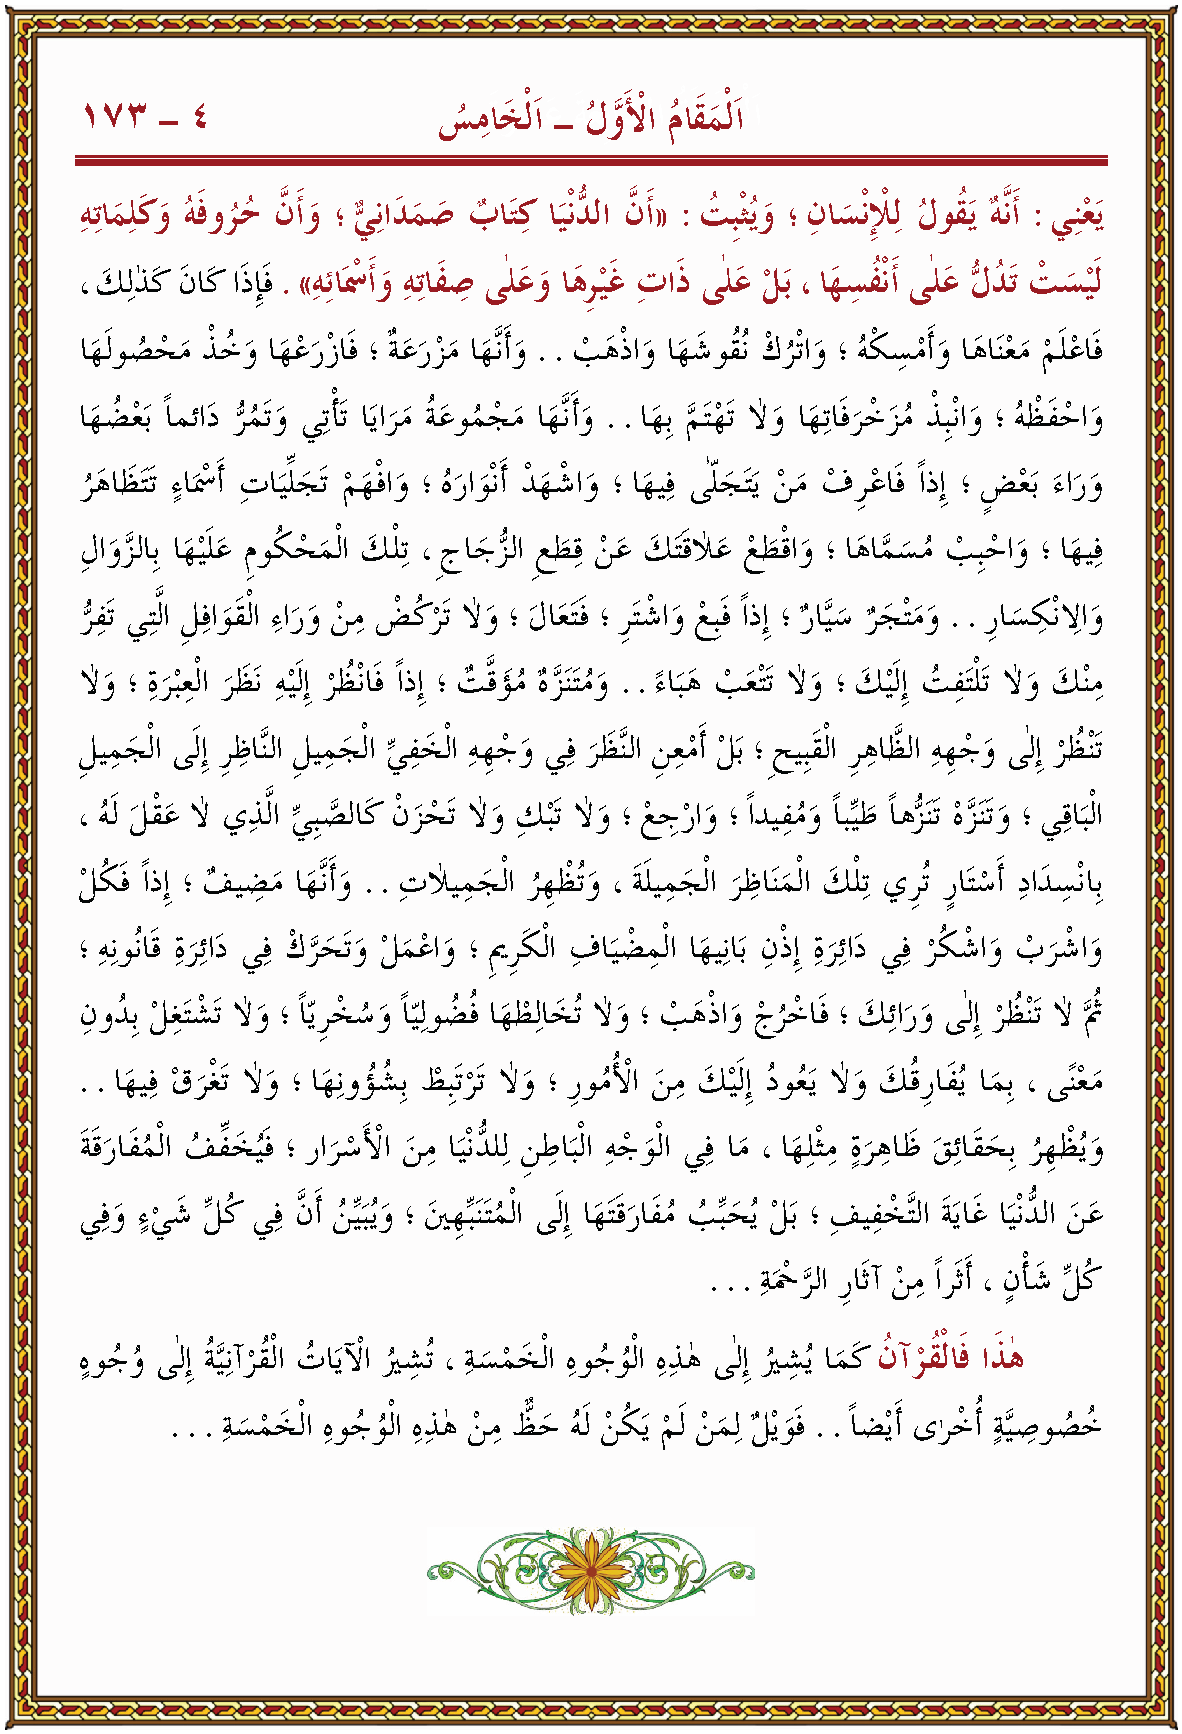 اَلْمَقَامُ الْأَوَّلُ ــ اَلْخَامِسُ ٤ ــ ١٧٣
يَعْنِي : أَنَّهُ يَقُولُ لِلْإِنْسَانِ ؛ وَيُثْبِتُ : «أَنَّ الدُّنْيَا كِتَابٌ صَمَدَانِيٌّ ؛ وَأَنَّ حُرُوفَهُ وَكَلِمَاتِهِ
لَيْسَتْ تَدُلُّ عَلٰى أَنْفُسِهَا ، بَلْ عَلٰى ذَاتِ غَيْرِهَا وَعَلٰى صِفَاتِهِ وَأَسْمَائِهِ» . فَإِذَا كَانَ كَذٰلِكَ ،
فَاعْلَمْ مَعْنَاهَا وَأَمْسِكْهُ ؛ وَاتْرُكْ نُقُوشَهَا وَاذْهَبْ . . وَأَنَّهَا مَزْرَعَةٌ ؛ فَازْرَعْهَا وَخُذْ مَحْصُولَهَا
وَاحْفَظْهُ ؛ وَانْبِذْ مُزَخْرَفَاتِهَا وَلاٰ تَهْتَمَّ بِهَا . . وَأَنَّهَا مَجْمُوعَةُ مَرَايَا تَأْتِي وَتَمُرُّ دَائماً بَعْضُهَا
وَرَاءَ بَعْضٍ ؛ إِذاً فَاعْرِفْ مَنْ يَتَجَلّٰى فِيهَا ؛ وَاشْهَدْ أَنْوَارَهُ ؛ وَافْهَمْ تَجَلِّيَاتِ أَسْمَاءٍ تَتَظَاهَرُ
فِيهَا ؛ وَاحْبِبْ مُسَمَّاهَا ؛ وَاقْطَعْ عَلاٰقَتَكَ عَنْ قِطَعِ الزُّجَاجِ ، تِلْكَ الْمَحْكُومِ عَلَيْهَا بِالزَّوَالِ
وَالِانْكِسَارِ . . وَمَتْجَرٌ سَيَّارٌ ؛ إِذاً فَبِعْ وَاشْتَرِ ؛ فَتَعَالَ ؛ وَلاٰ تَرْكُضْ مِنْ وَرَاءِ الْقَوَافِلِ الَّتِي تَفِرُّ
مِنْكَ وَلاٰ تَلْتَفِتُ إِلَيْكَ ؛ وَلاٰ تَتْعَبْ هَبَاءً . . وَمُتَنَزَّهٌ مُؤَقَّتٌ ؛ إِذاً فَانْظُرْ إِلَيْهِ نَظَرَ الْعِبْرَةِ ؛ وَلاٰ
تَنْظُرْ إِلٰى وَجْهِهِ الظَّاهِرِ الْقَبِيحِ ؛ بَلْ أَمْعِنِ النَّظَرَ فِي وَجْهِهِ الْخَفِيِّ الْجَمِيلِ النَّاظِرِ إِلَى الْجَمِيلِ
الْبَاقِي ؛ وَتَنَزَّهْ تَنَزُّهاً طَيِّباً وَمُفِيداً ؛ وَارْجِعْ ؛ وَلاٰ تَبْكِ وَلاٰ تَحْزَنْ كَالصَّبِيِّ الَّذِي لاٰ عَقْلَ لَهُ ،
بِانْسِدَادِ أَسْتَارٍ تُرِي تِلْكَ الْمَنَاظِرَ الْجَمِيلَةَ ، وَتُظْهِرُ الْجَمِيلاٰتِ . . وَأَنَّهَا مَضِيفٌ ؛ إِذاً فَكُلْ
وَاشْرَبْ وَاشْكُرْ فِي دَائِرَةِ إِذْنِ بَانِيهَا الْمِضْيَافِ الْكَرِيمِ ؛ وَاعْمَلْ وَتَحَرَّكْ فِي دَائِرَةِ قَانُونِهِ ؛
ثُمَّ لاٰ تَنْظُرْ إِلٰى وَرَائِكَ ؛ فَاخْرُجْ وَاذْهَبْ ؛ وَلاٰ تُخَالِطْهَا فُضُولِيّاً وَسُخْرِيّاً ؛ وَلاٰ تَشْتَغِلْ بِدُونِ
مَعْنًى ، بِمَا يُفَارِقُكَ وَلاٰ يَعُودُ إِلَيْكَ مِنَ الْأُمُورِ ؛ وَلاٰ تَرْتَبِطْ بِشُؤُونِهَا ؛ وَلاٰ تَغْرَقْ فِيهَا . .
وَيُظْهِرُ بِحَقَائِقَ ظَاهِرَةٍ مِثْلِهَا ، مَا فِي الْوَجْهِ الْبَاطِنِ لِلدُّنْيَا مِنَ الْأَسْرَارِ ؛ فَيُخَفِّفُ الْمُفَارَقَةَ
عَنَ الدُّنْيَا غَايَةَ التَّخْفِيفِ ؛ بَلْ يُحَبِّبُ مُفَارَقَتَهَا إِلَى الْمُتَنَبِّهِينَ ؛ وَيُبَيِّنُ أَنَّ فِي كُلِّ شَيْءٍ وَفِي
كُلِّ شَأْنٍ ، أَثَراً مِنْ آثَارِ الرَّحْمَةِ . . .
هٰذَا فَالْقُرْآنُ كَمَا يُشِيرُ إِلٰى هٰذِهِ الْوُجُوهِ الْخَمْسَةِ ، تُشِيرُ الْآيَاتُ الْقُرْآنِيَّةُ إِلٰى وُجُوهٍ
خُصُوصِيَّةٍ أُخْرٰى أَيْضاً . . فَوَيْلٌ لِمَنْ لَمْ يَكُنْ لَهُ حَظٌّ مِنْ هٰذِهِ الْوُجُوهِ الْخَمْسَةِ . . .